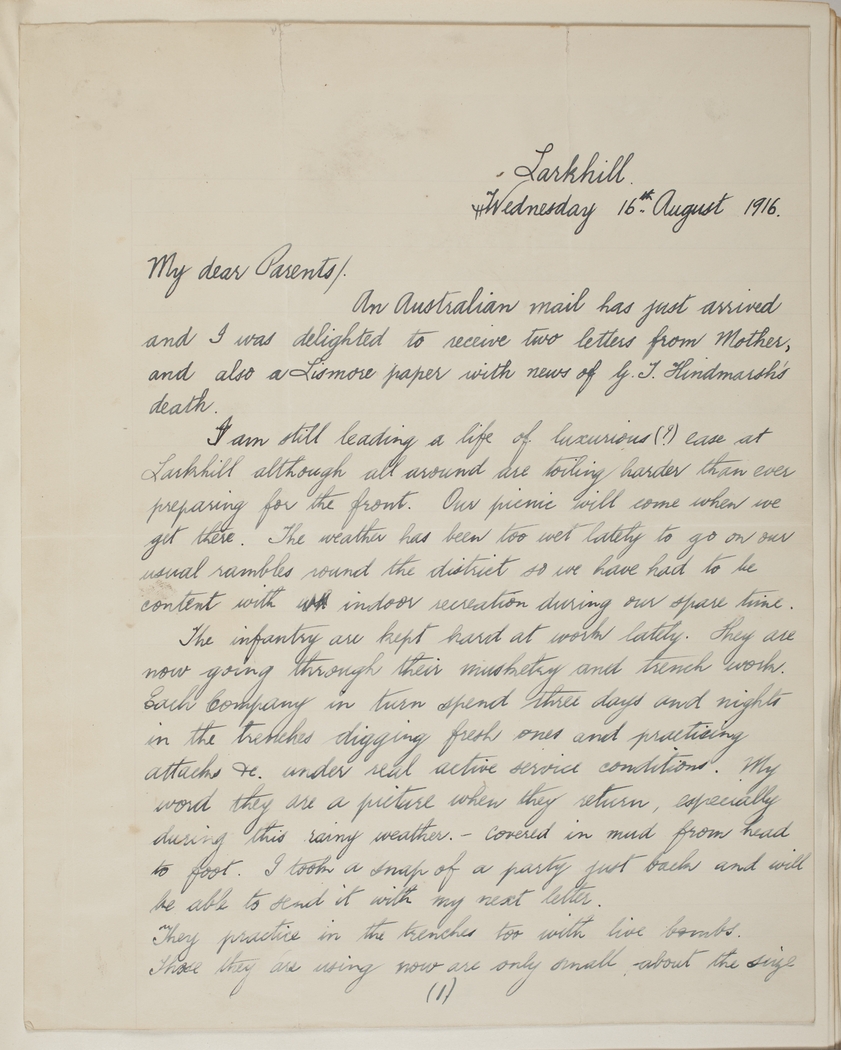 Larkhill.
Wednesday 16th. August 1916.
My dear Parents/.
An Australian mail has just arrived
and I was delighted to receive two letters from Mother,
and also a Lismore paper with news of G. T. Hindmarsh's
death.
I am still leading a life of luxurious (?) ease at
Larkhill although all around are toiling harder than ever
preparing for the front. Our picnic will come when we
get there. The weather has been too wet lately to go on our
usual rambles round the district so we have had to be
content with indoor recreation during our spare time.
The infantry are kept hard at work lately. They are
now going through their musketry and trench work.
Each Company in turn spend three days and nights
in the trenches digging fresh ones and practising
attacks &c. under real active service conditions. My
word they are a picture when they return, especially
during this rainy weather. - covered in mud from head
to foot. I took a snap of a party just back and will
be able to send it with my next letter.
They practice in the trenches too with live bombs.
Those they are using now are only small - about the size
(1)